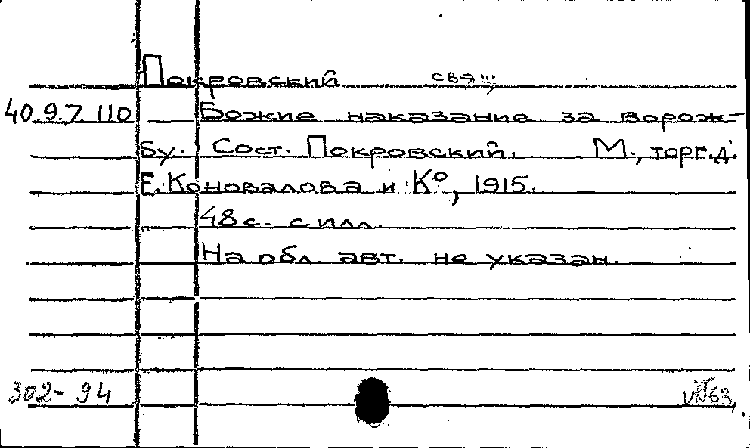 Покровский свящ.
40.9.7.110 Божие наказание за ворож-
бу. Сост. Покровский. М., торг.д.
Е. Коновалова и К°, 1915.
48 с. с илл.
На обл. авт. не указан.
302-94